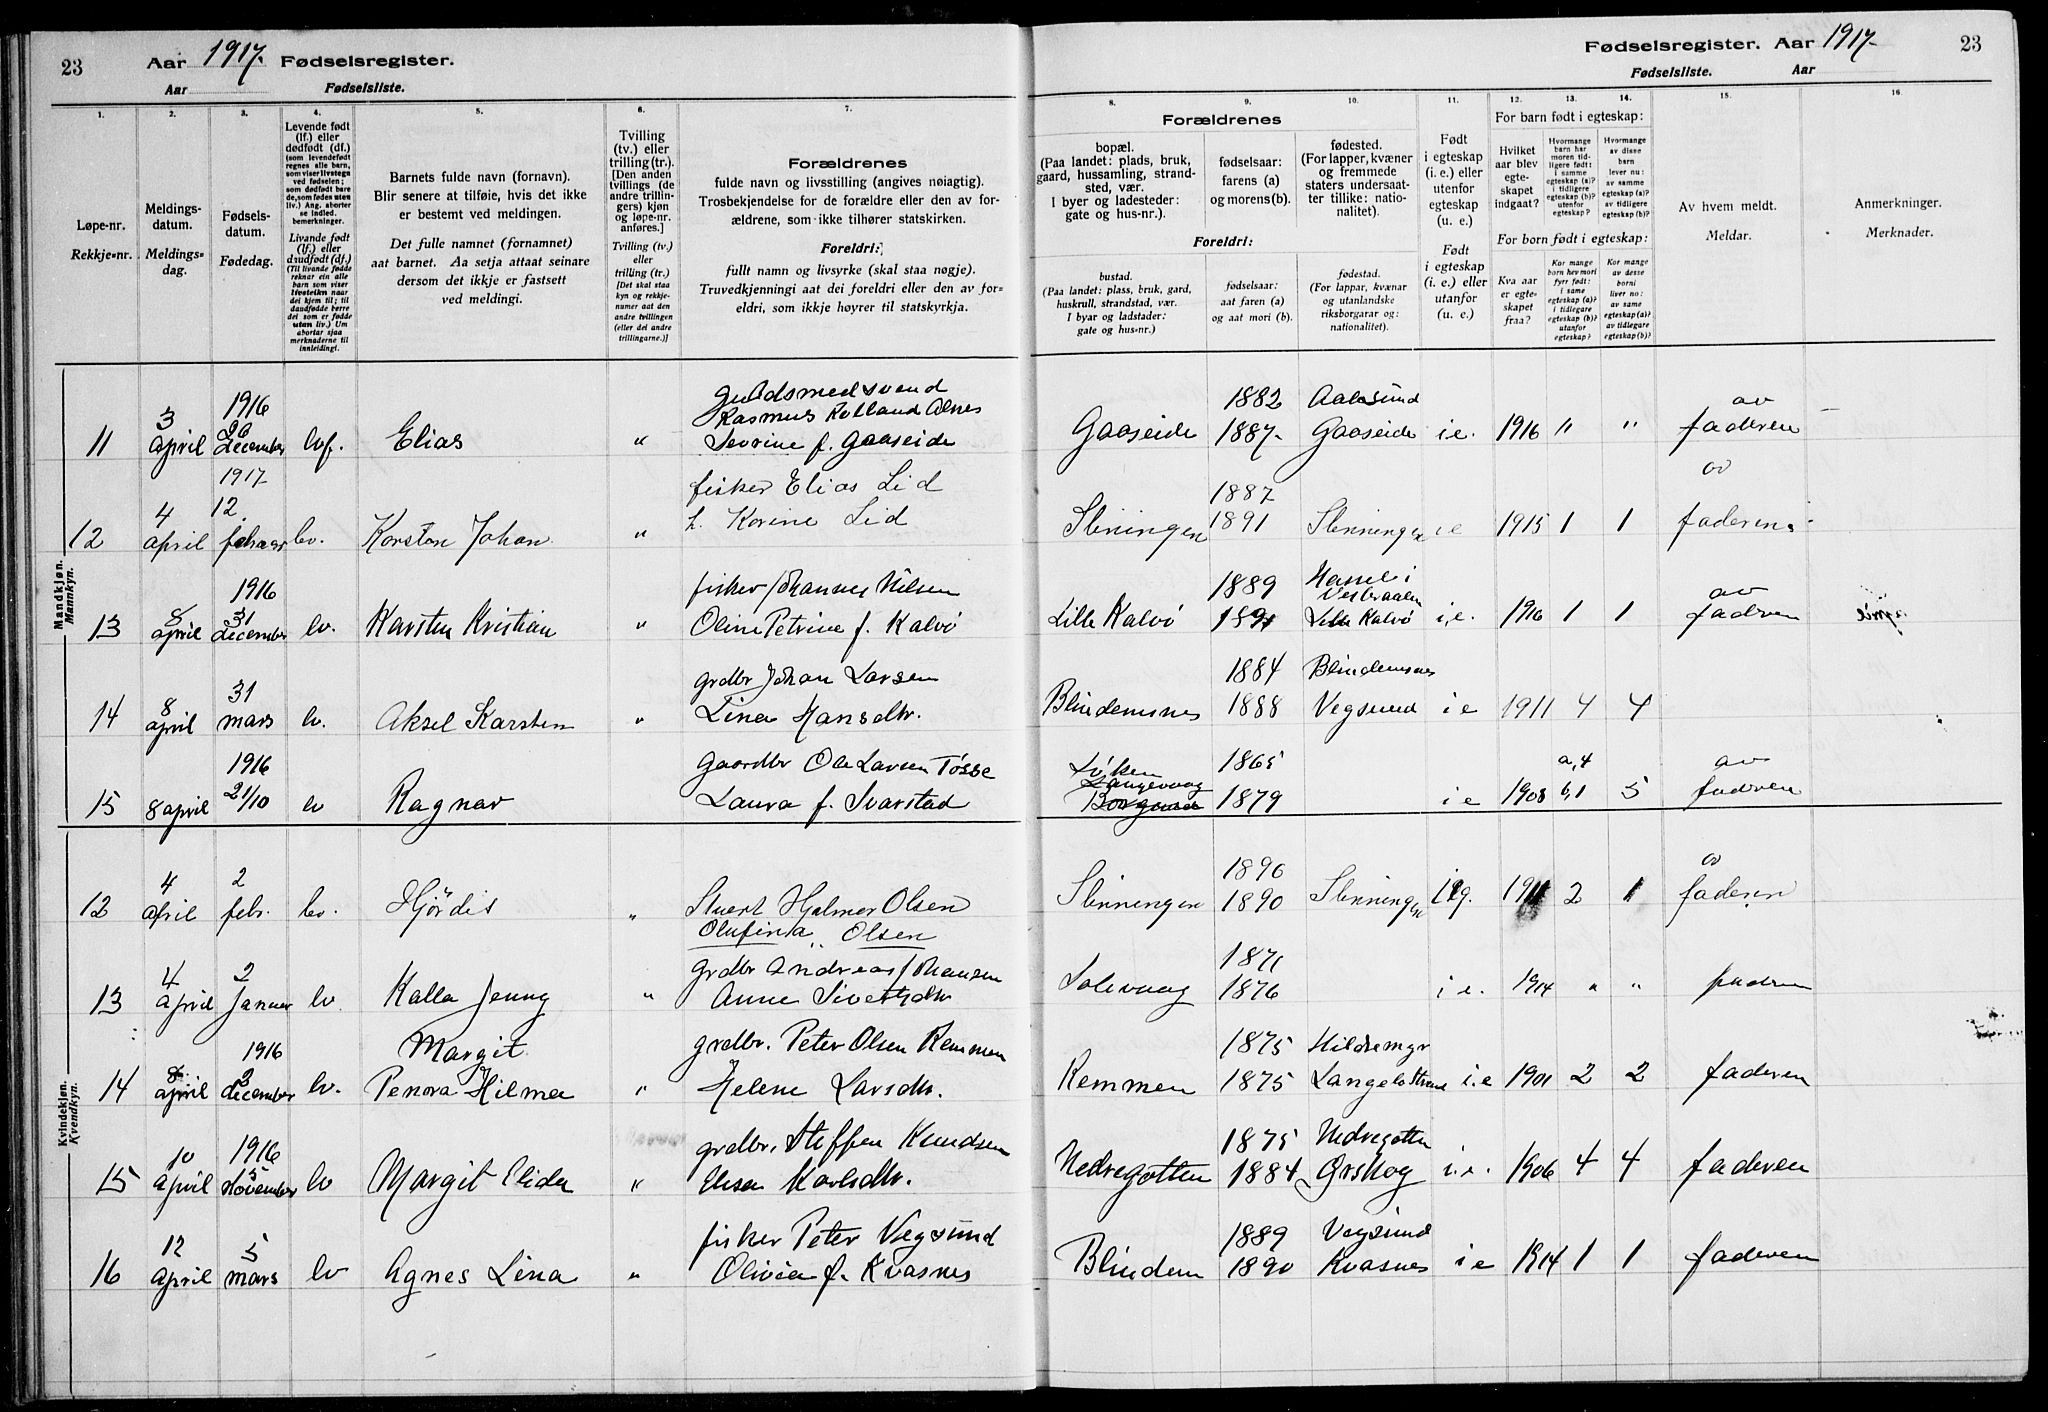 23 Aar 1917. Fødselsregister.
Aar Fødselsliste.
Fødselsregister. Aar 1917. 23
Fødselsliste. Aar
1. 2. 3. 4. 5. 6. 7. 8. 9. 10. 11. 12. 13. 14. 15. 16.
Løpe-nr.
Rekkje=nr.
Meldings-
datum.
Meldings=
dag.
Fødsels-
datum.
Fødedag.
Levende født
(lf.) eller
dødfødt (df.)
(som levendefødt
regnes alle barn,
som viser livstegn
ved fødselen;
som dødfødt bare
de, som fødes uten
liv.) Ang. aborter
se indled.
bemerkninger.
Livande født
(lf.) eller
daudfødt (df.)
(Til livande fødde
reknar ein alle
barn som viser
livsteikn naar
dei kjem til; til
daudfødde berre
dei som er fødde
utan liv.) Um
abortar sjaa
merknaderne til
innleidingi.
Barnets fulde navn (fornavn).
Blir senere at tilføie, hvis det ikke
er bestemt ved meldingen.
Det fulle namnet (fornamnet)
aat barnet. Aa setja attaat seinare
dersom det ikkje er fastsett
ved meldingi.
Tvilling
(tv.) eller
trilling (tr.).
[Den anden
tvillings (de
andre trillin-
gers) kjøn
og løpe-nr.
anføres.]
Tvilling (tv.)
eller
trilling (tr.)
[Det skal staa
kyn og rekkje-
numer aat den
andre tvillingen
(eller dei andre
trillingarne.)]
Forældrenes
fulde navn og livsstilling (angives nøiagtig).
Trosbekjendelse for de forældre eller den av for-
ældrene, som ikke tilhører statskirken.
Foreldri:
fullt namn og livsyrke (skal staa nøgje).
Truvedkjenningi aat dei foreldri eller den av for-
eldri, som ikkje høyrer til statskyrkja.
Forældrenes
bopæl.
(Paa landet: plads, bruk,
gaard, hussamling, strand-
sted, vær.
I byer og ladesteder:
gate og hus-nr.).
fødselsaar:
farens (a)
og morens (b).
fødested.
(For lapper, kvæner
og fremmede
staters undersaat-
ter tillike: natio-
nalitet).
Foreldri:
bustad.
(Paa landet: plass, bruk, gard,
huskrull, strandstad, vær.
I byar og ladstader:
gate og hus=nr.)
fødselsaar:
aat faren (a)
og aat mori (b).
fødestad.
(For lappar, kvænar
og utanlandske
riksborgarar og:
nationalitet).
Født
i egteskap
(i. e.) eller
utenfor
egteskap
(u. e.)
Født
i egteskap
(i. e.) eller
utanfor
(u. e.)
For barn født i egteskap:
Hvilket
aar blev
egte-
skapet
indgaat?
Hvormange
barn har
moren tid-
ligere født:
i samme
egteskap (a)?
i tidligere
egteskap (b)?
utenfor
egteskap?
Hvormange
av disse
barn
lever nu:
av samme
egteskap (a)?
av tidligere
egteskap (b)?
For born født i egteskap:
Kva aar
er egte-
skapet
fraa?
Kor mange
born hev mori
fyrr født:
i same
egteskap (a)?
i tidlegare
egteskap (b)?
utanfor
egteskap?
Kor mange
av desse
borni
liver no:
av same
egteskap (a)?
av tidlegare
egteskap (b)?
Av hvem meldt.
Meldar.
Anmerkninger.
Merknader.
Mandkjøn.
Mannkyn.
11 3 april 1916 december lvf. Elias " Guldsmedsvend
Rasmus Rolland Alnes
Sevrine f. Gaaseide
Gaaseide 1882 1887. Aalesund Gaaseide i.e. 1916 " " av faderen
12 4 april 1917 12. februar lv. Karsten Johan " fisker Elias Lid
h. Korine Lid
Slinningen 1887 1891 Slinningen i e 1915 1 1 av faderen
13 8 april 1916 31 december lv. Karsten Kristian " fisker Johannes Nilsen
Oline Petrine f. Kalvø
Lille Kalvø 1889 1891 Hassel i Vesteraalen Lille Kalvø i.e. 1916 1 1 av faderen
14 8 april 31 mars lv. Aksel Karsten " grdbr Johan Larsen
Lina Hansdtr.
Blindemsnes 1884 1888 Blindemsnes Vegsund i e 1911 4 4
15 8 april 1916 21/10 lv Ragnar Gaardbr Ole Larsen Tøsse
Laura f. Svarstad
Løken
Langevaag
Borgund 1865 1879 i e 1908 a, 4 b, 1 5 av faderen
Kvindekjøn.
Kvendkyn.
12 4 april 2 febr. lv. Hjørdis " Stuert Hjalmer Olsen
Olufina " Olsen
Slinningen 1890 1890 Slinningen i eg. 1911 2 1 av faderen
13 4 april 2 Januar lv. Kalla Jenny " grdbr Andreas Johansen
Anne Sivertsdtr
Solevaag 1871 1876 i e. 1914 " " fadren
14 8. april 1916 3 december lv. Margit
Penora Hilma " grdbr. Peter Olsen Remmen
Helene Larsdtr.
Remmen 1875 1875 Hildremyr Langeløstrand i.e 1901 2 2 faderen
15 10 april 1916 15 November lv Margit Elida " grdbr. Steffen Knudsen
Elisa Karlsdtr.
Nedregotten 1875 1884 Nedregotten Ørskog i.e. 1906 4 4 faderen
16 12 april 5 mars lv Agnes Lina " fisker Peter Vegsund
Olivia f. Kvasnes
Blindem 1889 1890 Vegsund Kvasnes i e 1914 1 1 faderen